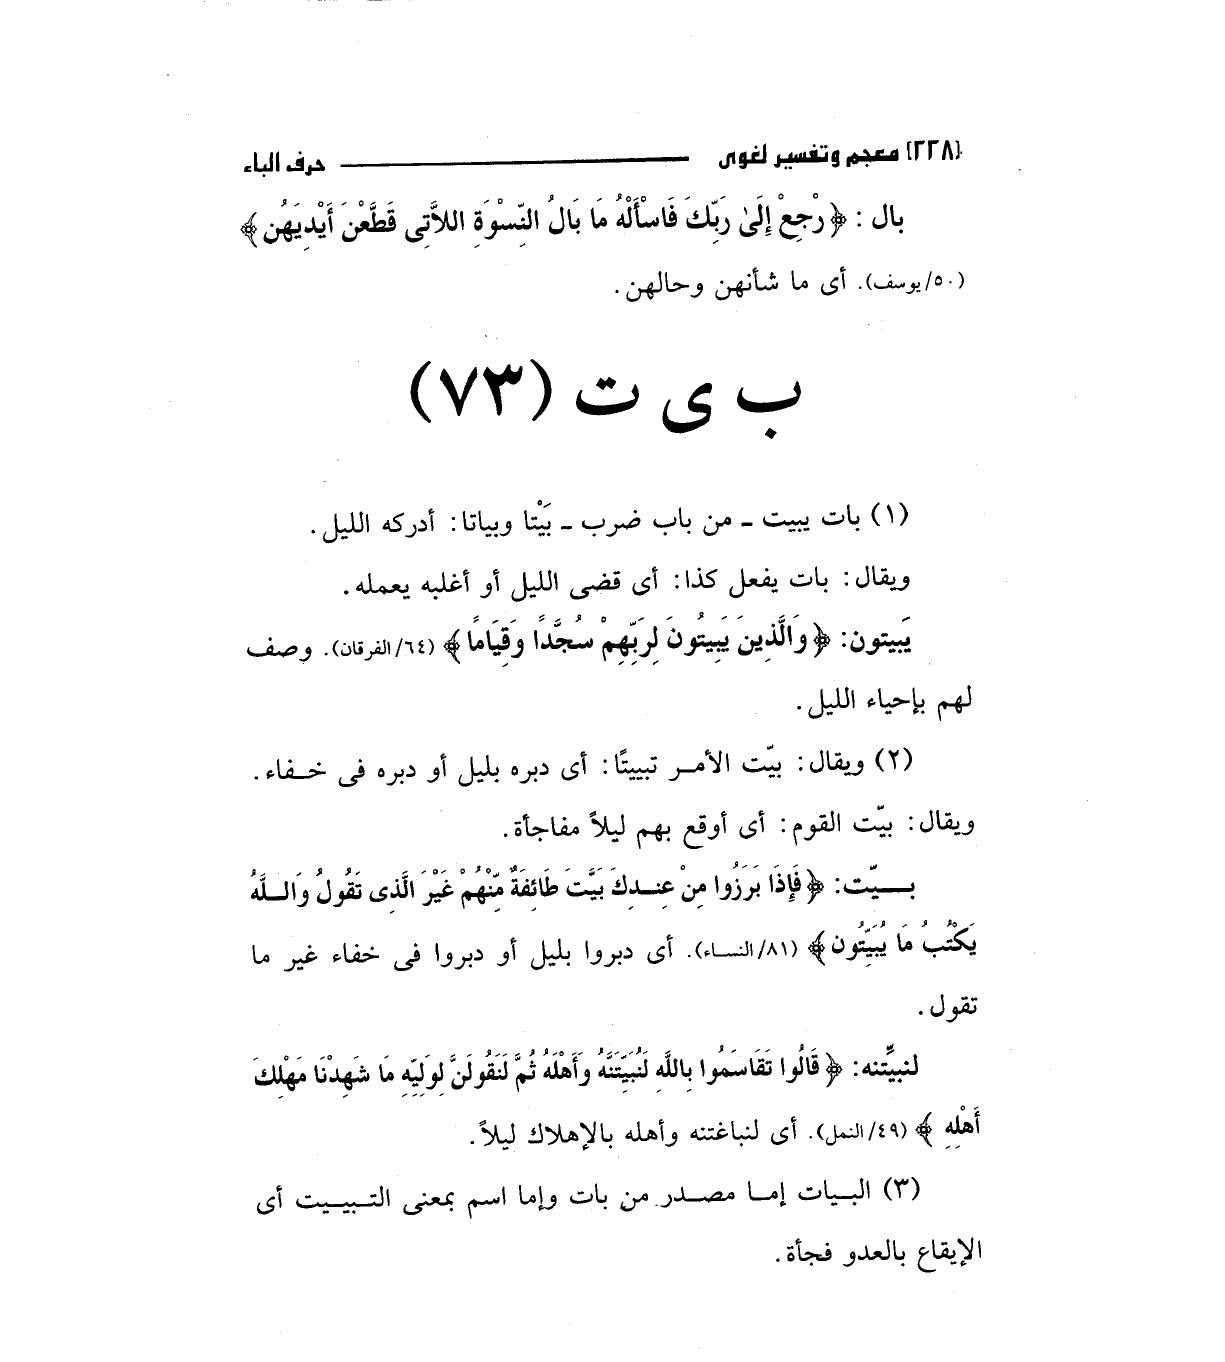 {٢٢٨} معجم وتفسير لغوى حرف الباء
بال : ﴿ رْجِعْ إِلَىٰ رَبِّكَ فَاسْأَلْهُ مَا بَالُ النِّسْوَةِ اللاَّتِى قَطَّعْنَ أَيْدِيَهُن ﴾
(٥٠/يوسف). أى ما شأنهن وحالهن.
ب ى ت (٧٣)
(١) بات يبيت ـ من باب ضرب ـ بَيْتا وبياتا: أدركه الليل.
ويقال: بات يفعل كذا: أى قضى الليل أو أغلبه يعمله.
يَبيتون: ﴿ وَالَّذِينَ يَبِيتُونَ لِرَبِّهِمْ سُجَّدًا وَقِيَامًا ﴾ (٦٤/الفرقان). وصف
لهم بإحياء الليل.
(٢) ويقال: بيّت الأمـر تبييتًا: أى دبره بليل أو دبره فى خـفاء.
ويقال: بيّت القوم: أى أوقع بهم ليلاً مفاجأة.
بـــيّت: ﴿ فَإِذَا بَرَزُوا مِنْ عِنـدِكَ بَيَّتَ طَائِفَةٌ مِّنْهُمْ غَيْرَ الَّذِى تَقُولُ وَالـلَّهُ
يَكْتُبُ مَا يُبَيِّتُون ﴾ (٨١/النساء). أى دبروا بليل أو دبروا فى خفاء غير ما
تقول.
لنبيِّتنه: ﴿ قَالُوا تَقَاسَمُوا بِاللَّهِ لَنُبَيِّتَنَّهُ وَأَهْلَهُ ثُمَّ لَنَقُولَنَّ لِوَلِيِّهِ مَا شَهِدْنَا مَهْلِكَ
أَهْلِهِ ﴾ (٤٩/النمل). أى لنباغتنه وأهله بالإهلاك ليلاً.
(٣) البـيات إمـا مصـدر من بات وإما اسم بمعنى التـبيـيت أى
الإيقاع بالعدو فجأة.